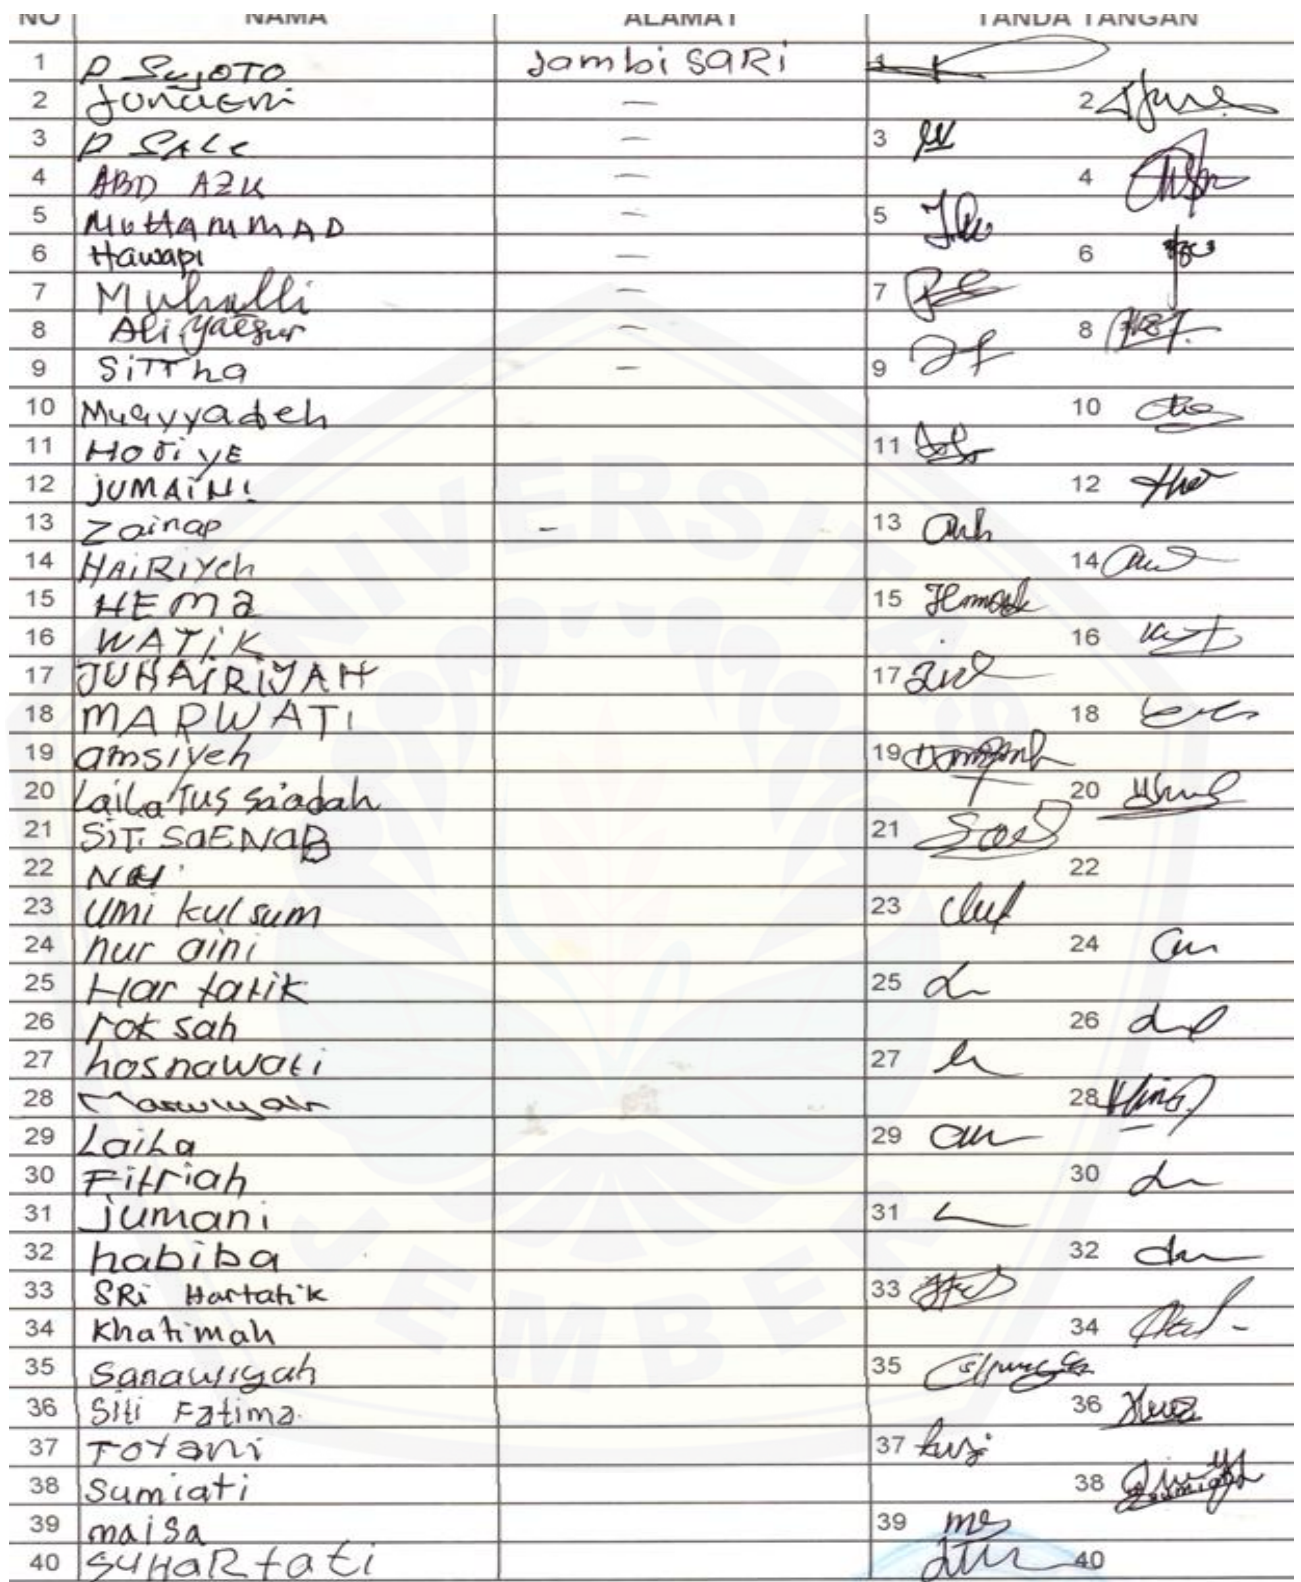 NO NAMA ALAMAT TANDA TANGAN
1 P Sujoto Jambi SARi 1
2 Junaeni — 2
3 P SALE — 3
4 ABD AZIZ — 4
5 MUHAMMAD — 5
6 Hawapi — 6
7 Muhalli — 7
8 Ali yaesur — 8
9 SiTTha — 9
10 Muayyadeh 10
11 HOTiyE 11
12 JUMAiNi 12
13 Zainap - 13
14 HAiRiYeh 14
15 HEMa 15
16 WATiK 16
17 JUHAiRiYAH 17
18 MARWATI 18
19 amsiyeh 19
20 Laila Tus Sa'adah 20
21 SiTi SaENAB 21
22 22
23 Umi kulsum 23
24 nur aini 24
25 Har tatik 25
26 rok sah 26
27 hosnawati 27
28 28
29 Laila 29
30 Fitriah 30
31 jumani 31
32 habiba 32
33 SRi Hartatik 33
34 Khatimah 34
35 Sanawiyah 35
36 Siti Fatima 36
37 Toyani 37
38 Sumiati 38
39 maisa 39
40 SUHARtati 40
UNIVERSITAS JEMBER